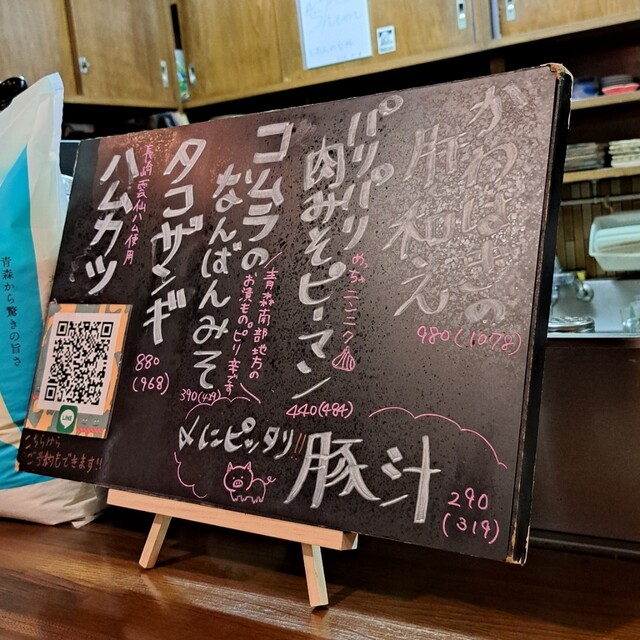 かわはぎの
肝和え
980(1078)
パリパリ
肉みそピーマン
めっちゃニンニク
440(484)
ゴムラの
なんばんみそ
青森南部地方の
お漬ものピリ辛です
390(429)
タコザンギ
880
(968)
ハムカツ
長崎雲仙ハム使用
〆にピッタリ!!
豚汁
290
(319)
LINE
こちらから
ご予約もできます!!
青森から驚きの旨さ